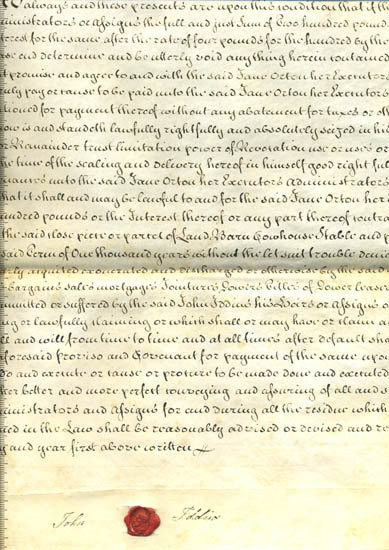 always and these presents are upon this condition that if the
ministrators or Assigns the full and just Sum of Two hundred pounds
terest for the same after the rate of four pounds for the hundred by the
se end determine and be utterly void any thing herein contained
t promise and agree to and with the said Jane Orton her Executors
ruly pay or cause to be paid unto the said Jane Orton her Executors
tioned for payment thereof without any abatement for taxes or oth
now is and standeth lawfully rightfully and absolutely seized in his
or Remainder trust limitation power of Revocation use or uses or
the time of the sealing and delivery hereof in himself good right full
unto the said Jane Orton her Executors Administrators
that it shall and may be lawful to and for the said Jane Orton her
undred pounds or the Interest thereof or any part thereof contra
the said close piece or parcel of Land Barn Cowhouse Stable and p
said Term of One thousand years without the let suit trouble denia
rly acquitted exonerated and discharged or otherwise by the said
Bargains sales mortgages Jointures Dowers titles of Dower leases
mmitted or suffered by the said John Iddins his Heirs or Assigns o
ng or lawfully claiming or which shall or may have or claim a
ll and will from time to time and at all times after default sha
aforesaid Proviso and Covenant for payment of the same upon
do and execute or cause or procure to be made done and executed
ther better and more perfect conveying and assuring of all and s
ministrators and Assigns for and during all the residue which
ned in the Law shall be reasonably advised or devised and re
y and year first above written
John Iddins